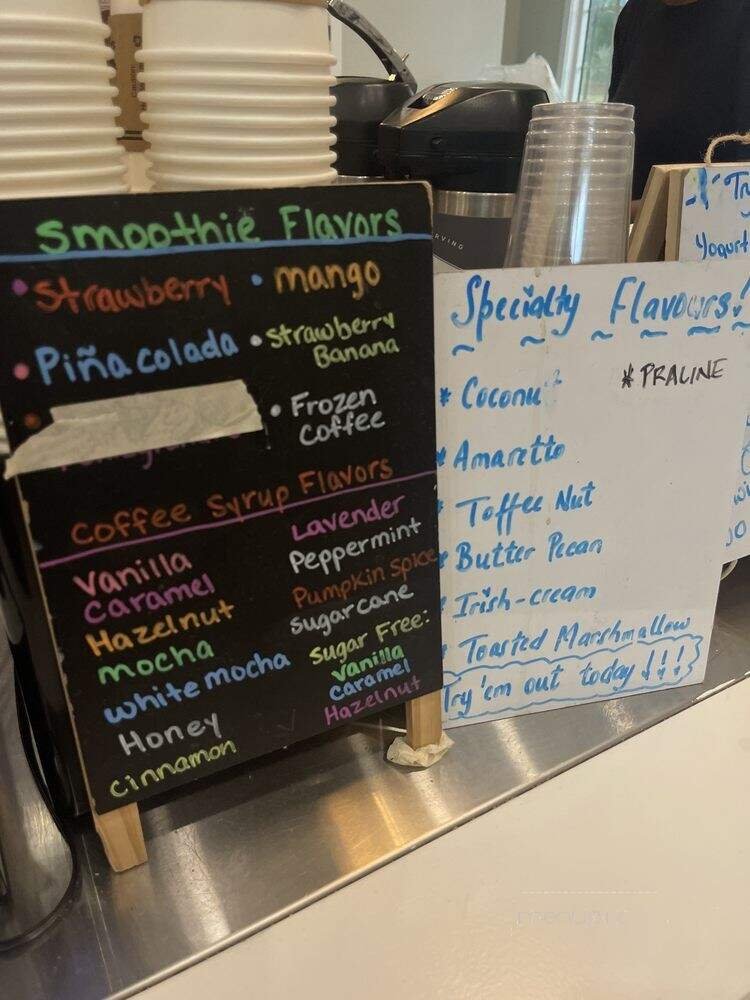 Smoothie Flavors
Strawberry
mango
Piña colada
Strawberry
Banana
Frozen
Coffee
Coffee Syrup Flavors
Vanilla
Caramel
Hazelnut
mocha
white mocha
Honey
cinnamon
Lavender
Peppermint
Pumpkin Spice
sugar cane
Sugar Free:
Vanilla
caramel
Hazelnut
Specialty Flavours!
* Coconut
* PRALINE
* Amaretto
* Toffee Nut
* Butter Pecan
* Irish-cream
* Toasted Marshmallow
Try 'em out today!!!
Yogurt